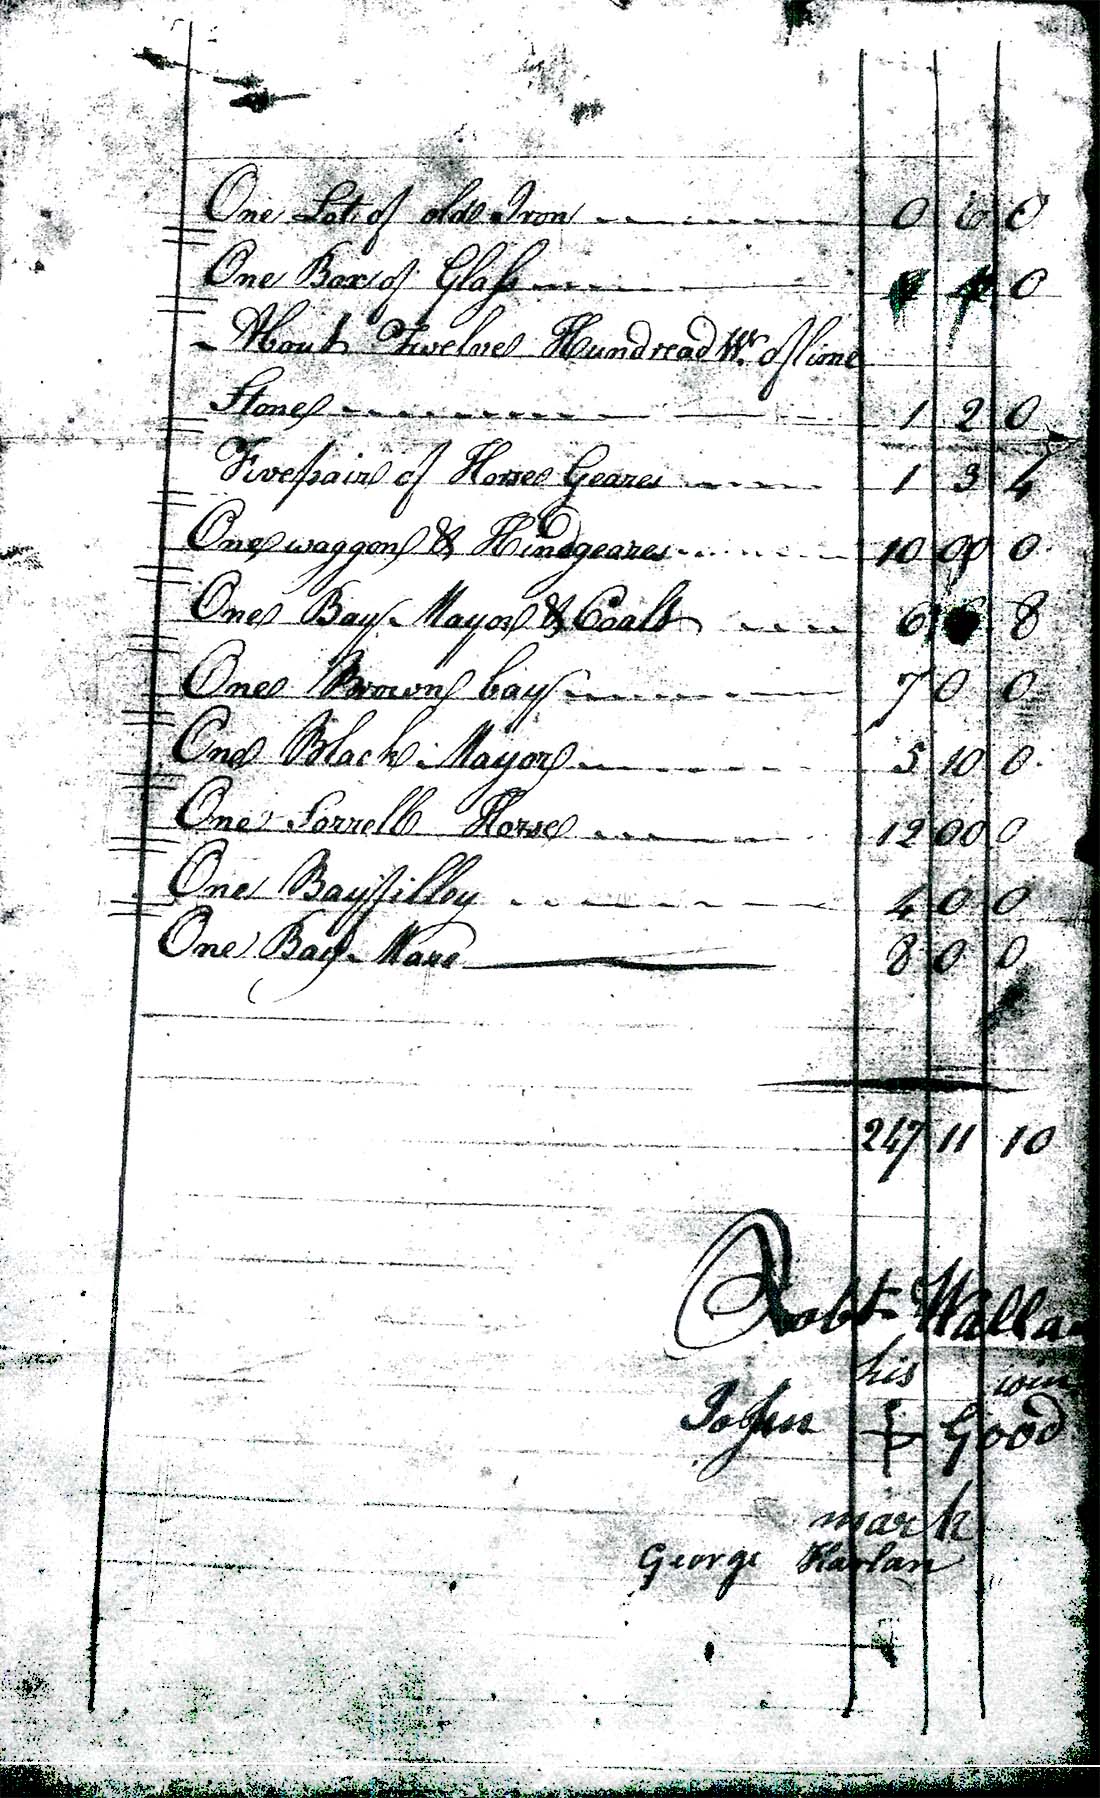 One Lot of olde Iron 0 6 0
One Box of Glass 0
About Twelve Hundread Wt. of lime
Stones 1 2 0
Five pair of Horse Geares 1 3 4
One waggon & Hindgeares 10 00 0
One Bay Mayor & Coalt 6 8
One Brown bay 7 0 0
One Black Mayor 5 10 0
One Sorrell Horse 12 00 0
One Bay filley 4 0 0
One Bay Mare 8 0 0
247 11 10
Robt Walla
his
John Good
mark
George Harlan